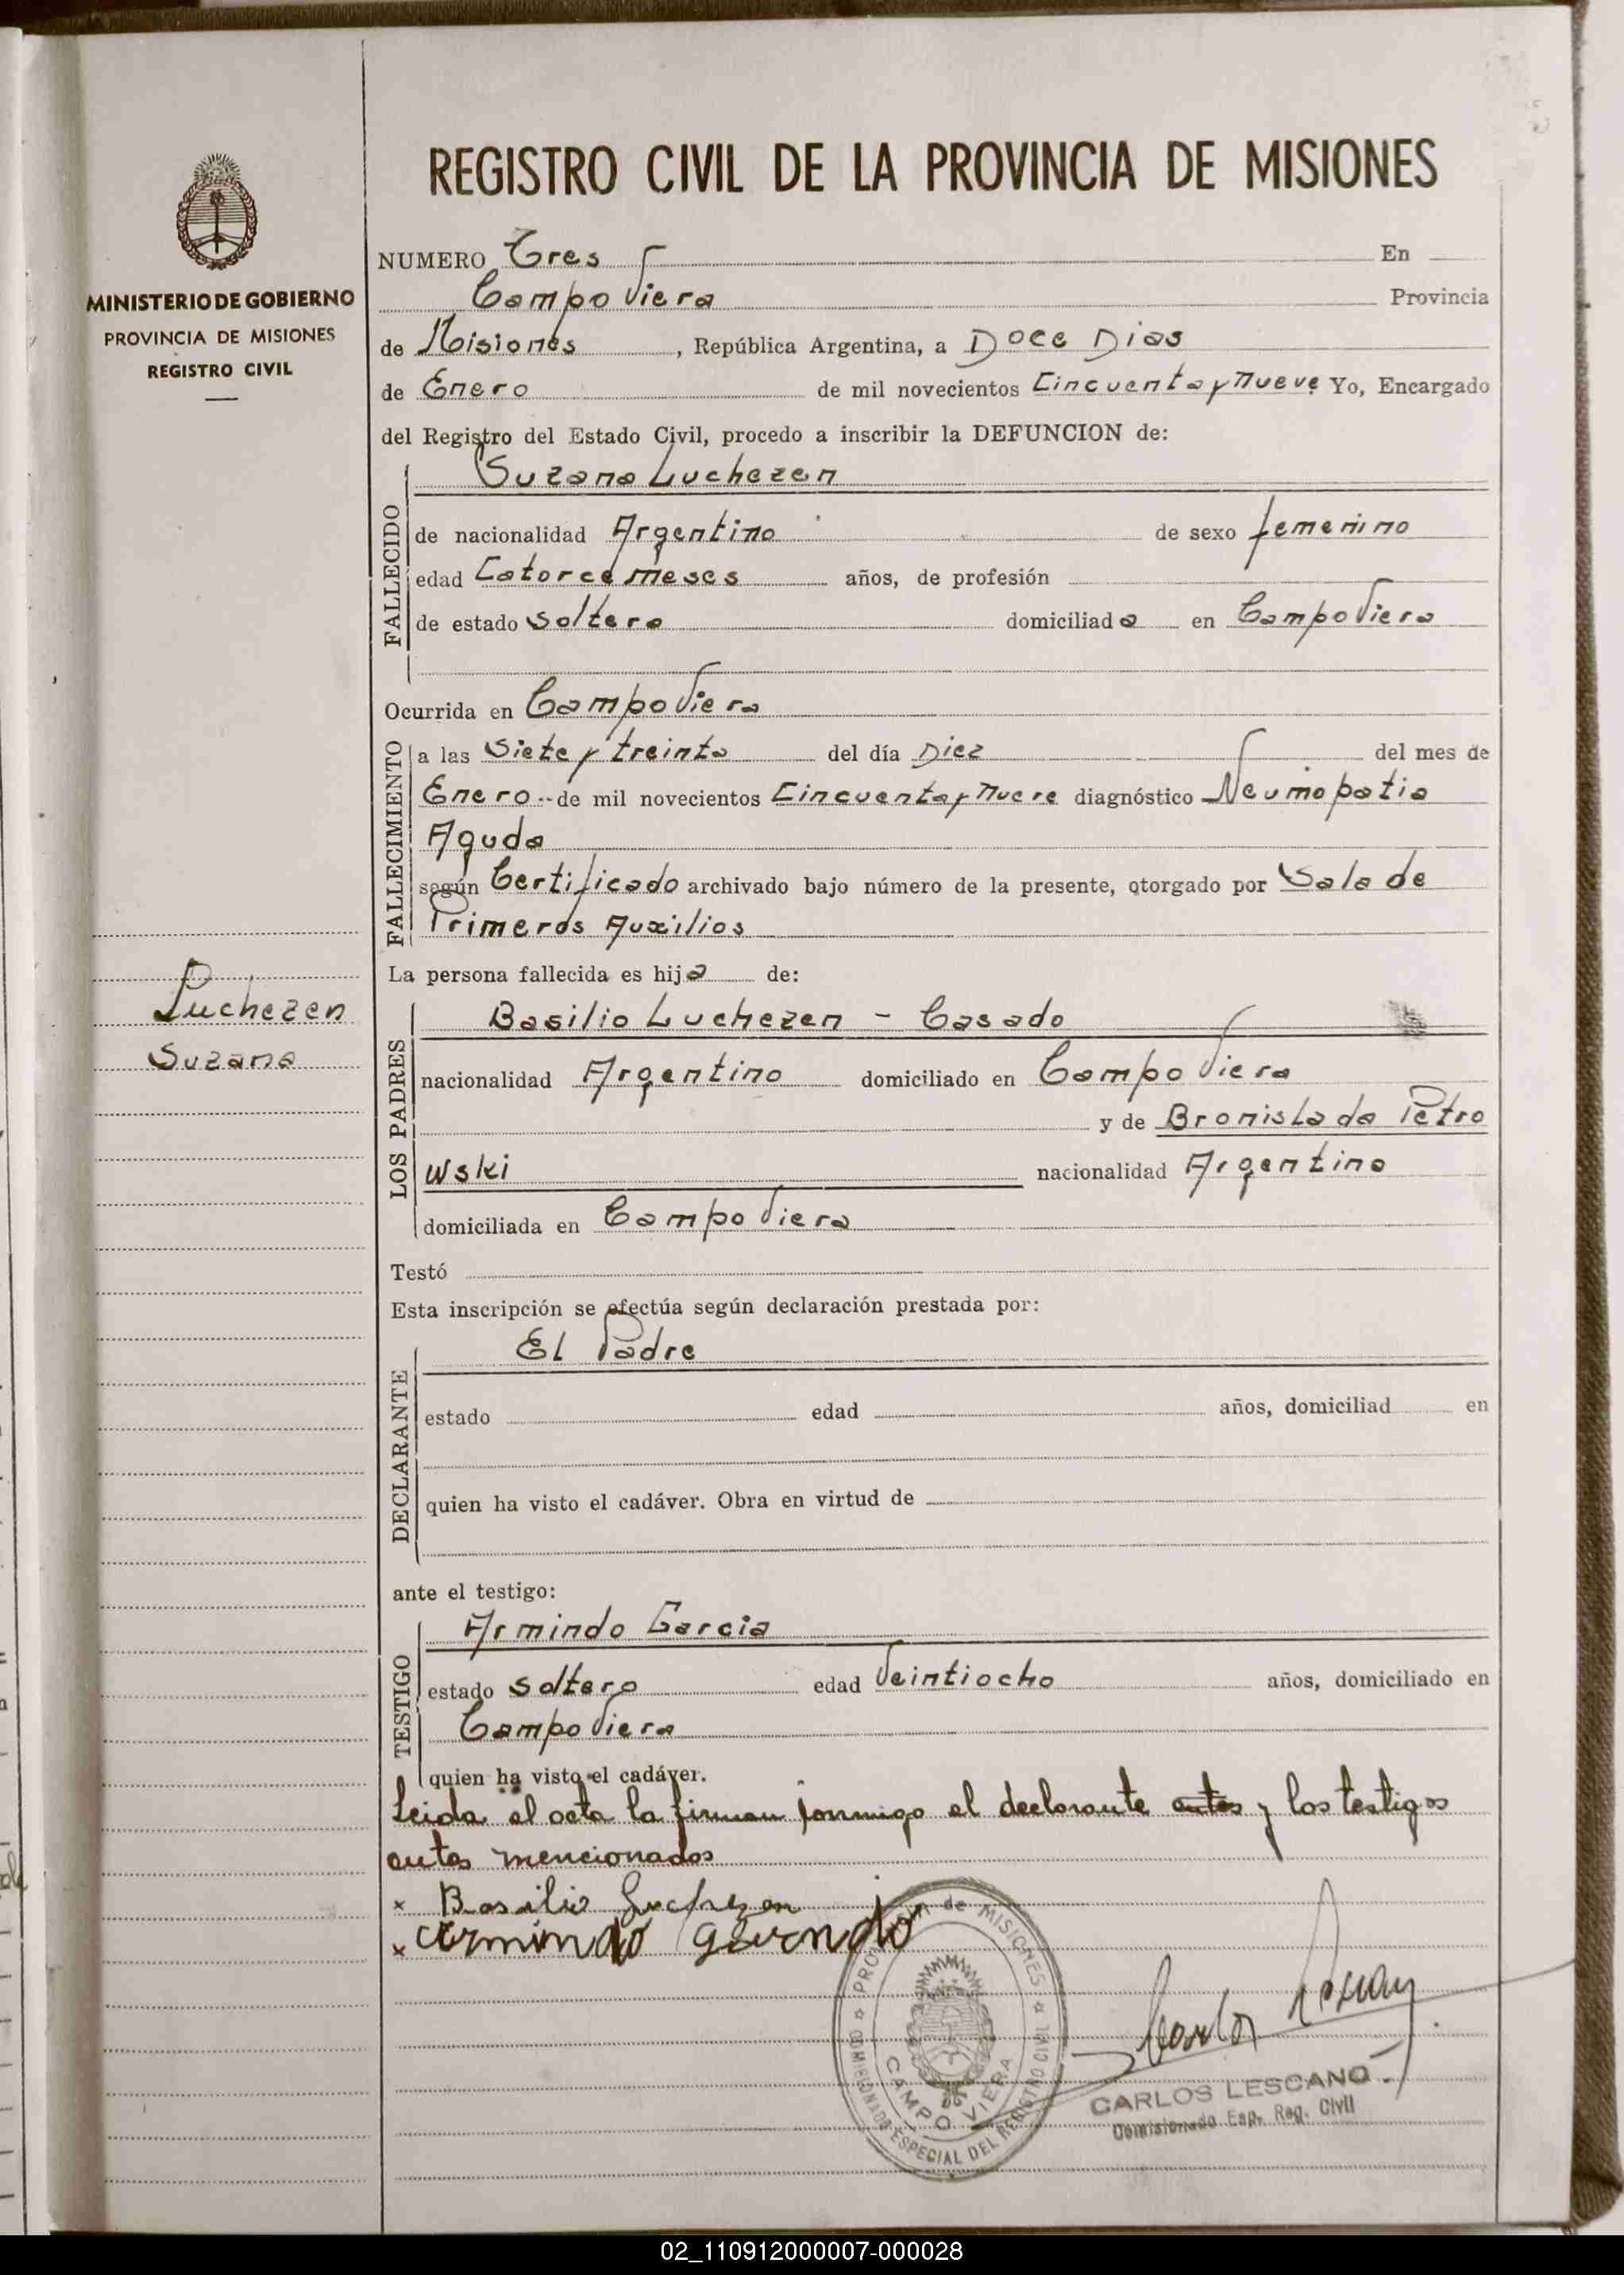 REGISTRO CIVIL DE LA PROVINCIA DE MISIONES
MINISTERIO DE GOBIERNO
PROVINCIA DE MISIONES
REGISTRO CIVIL
NUMERO Tres En
Campo Viera Provincia
de Misiones, República Argentina, a Doce Dias
de Enero de mil novecientos Cincuenta y Nueve Yo, Encargado
del Registro del Estado Civil, procedo a inscribir la DEFUNCION de:
Suzana Luchezen
FALLECIDO
de nacionalidad Argentina de sexo femenino
edad Catorce meses años, de profesión
de estado soltera domiciliada en Campo Viera
Ocurrida en Campo Viera
FALLECIMIENTO
a las Siete y treinta del día Diez del mes de
Enero de mil novecientos Cincuenta y Nueve diagnóstico Neumopatia
Aguda
según Certificado archivado bajo número de la presente, otorgado por Sala de
Primeros Auxilios
La persona fallecida es hija de:
Luchezen
Suzana
LOS PADRES
Basilio Luchezen - Casado
nacionalidad Argentino domiciliado en Campo Viera
y de Bronislada Petro
wski nacionalidad Argentina
domiciliada en Campo Viera
Testó
Esta inscripción se efectúa según declaración prestada por:
El Padre
DECLARANTE
estado edad años, domiciliad en
quien ha visto el cadáver. Obra en virtud de
ante el testigo:
Armindo Garcia
TESTIGO
estado soltero edad Veintiocho años, domiciliado en
Campo Viera
quien ha visto el cadáver.
Leida el acta la firman conmigo el declarante antes y los testigos
antes mencionados
x Basilio Luchezen
x Armindo
PROVINCIA de MISIONES
COMISIONADO ESPECIAL DEL REGISTRO CIVIL
CAMPO VIERA
CARLOS LESCANO
Comisionado Esp. Reg. Civil
02_110912000007-000028